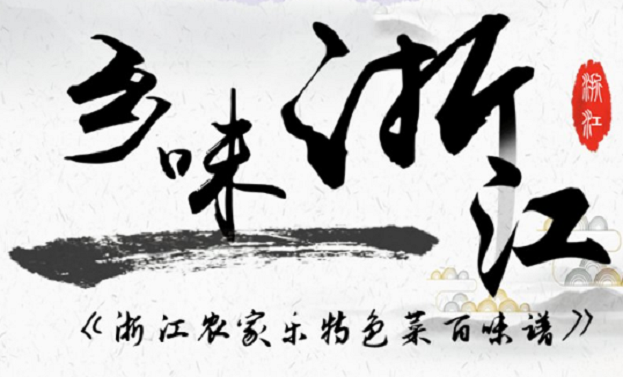 乡味浙江
浙江
《浙江农家乐特色菜百味谱》